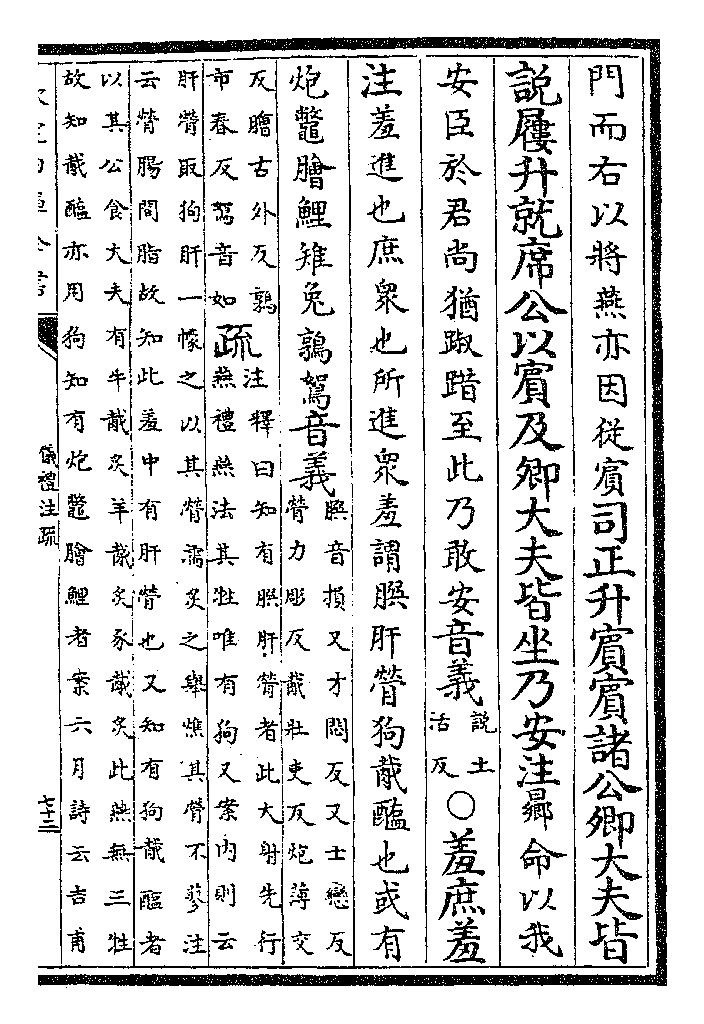 門而右以將燕亦因從賓司正升賓賓諸公卿大夫皆
說屨升就席公以賓及卿大夫皆坐乃安注曏命以我
安臣於君尚猶踧踖至此乃敢安音義說土活反○羞庶羞
注羞進也庶衆也所進衆羞謂䐹肝膋狗胾醢也或有
炮鼈膾鯉雉兔鶉鴽音義䐹音損又才悶反又士戀反
膋力彫反胾壯吏反炮薄交
反膾古外反鶉
市春反鴽音如疏注釋曰知有䐹肝膋者此大射先行
燕禮燕法其牲唯有狗又案內則云
肝膋取狗肝一幪之以其膋濡炙之舉燋其膋不蓼注
云膋腸間脂故知此羞中有肝膋也又知有狗胾醢者
以其公食大夫有牛胾炙羊胾炙豕胾炙此燕無三牲
故知胾醢亦用狗知有炮鼈膾鯉者案六月詩云吉甫
儀禮注疏
七十二